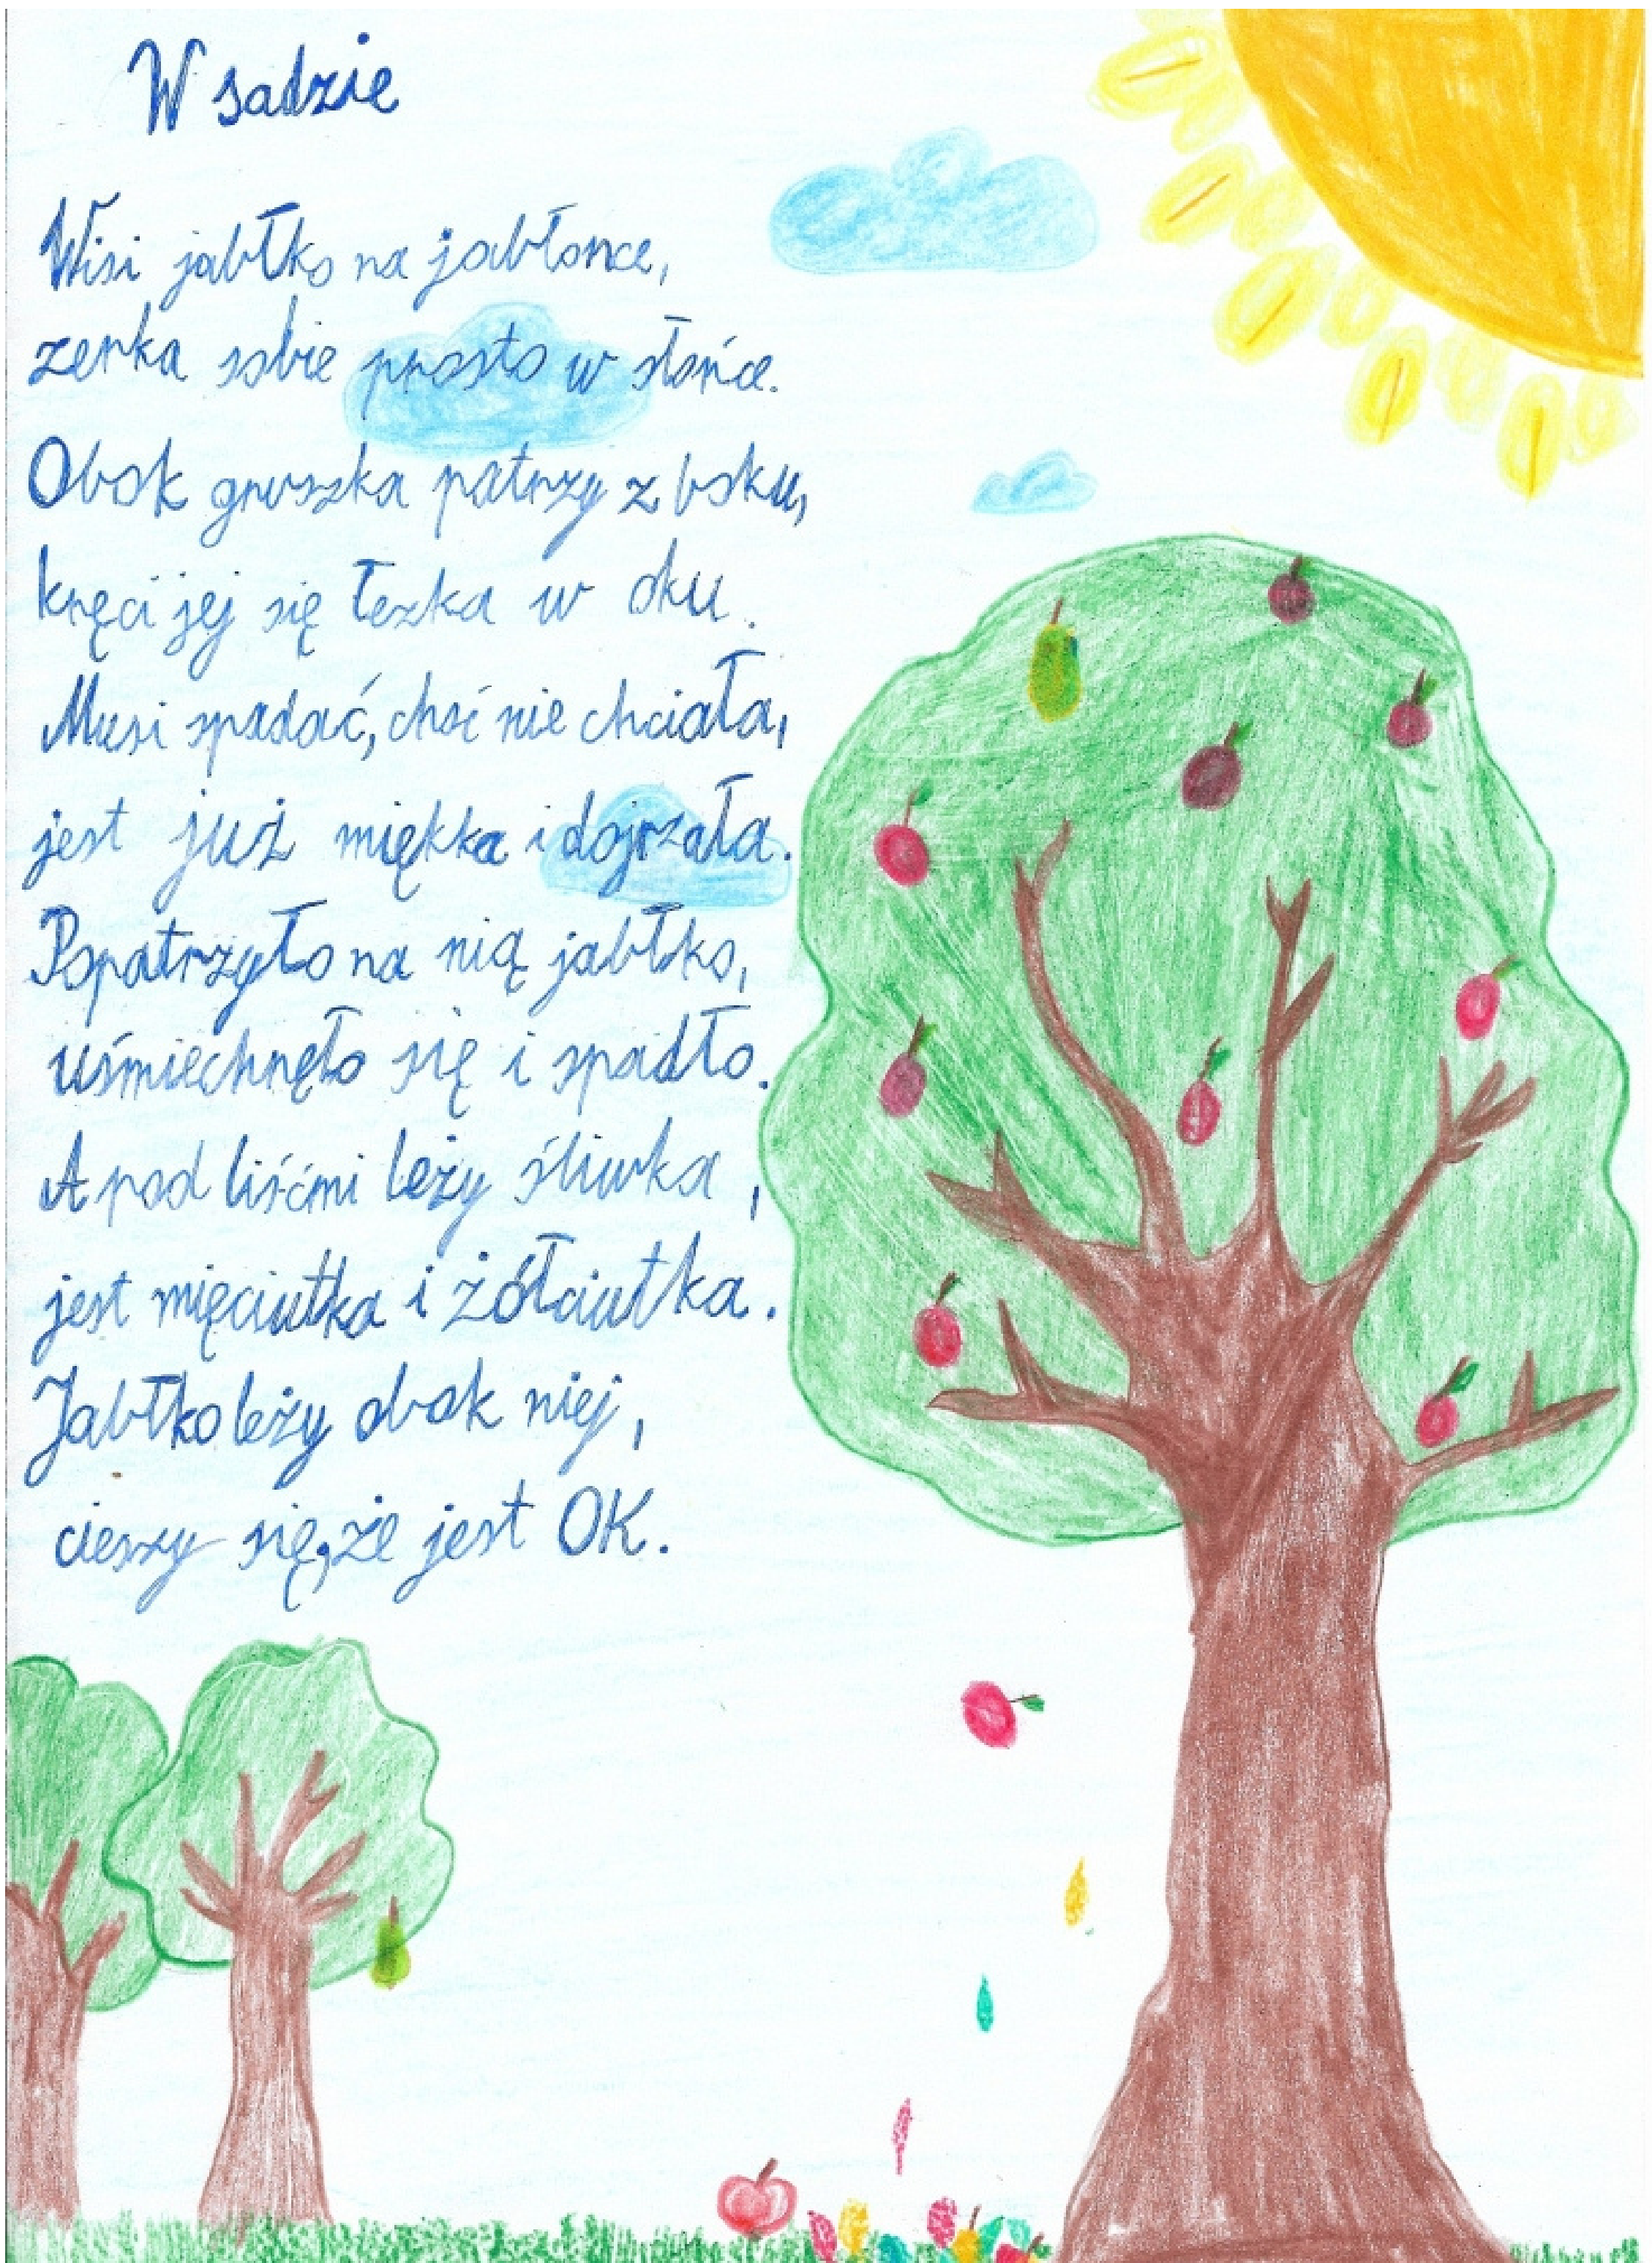 W sadzie
Wisi jabłko na jabłonce,
zerka sobie prosto w słońce.
Obok gruszka patrzy z boku,
kręci jej się łezka w oku.
Musi spadać, choć nie chciała,
jest już miękka i dojrzała.
Popatrzyło na nią jabłko,
uśmiechnęło się i spadło.
A pod liśćmi leży śliwka,
jest mięciutka i żółciutka.
Jabłko leży obok niej,
cieszy się, że jest OK.